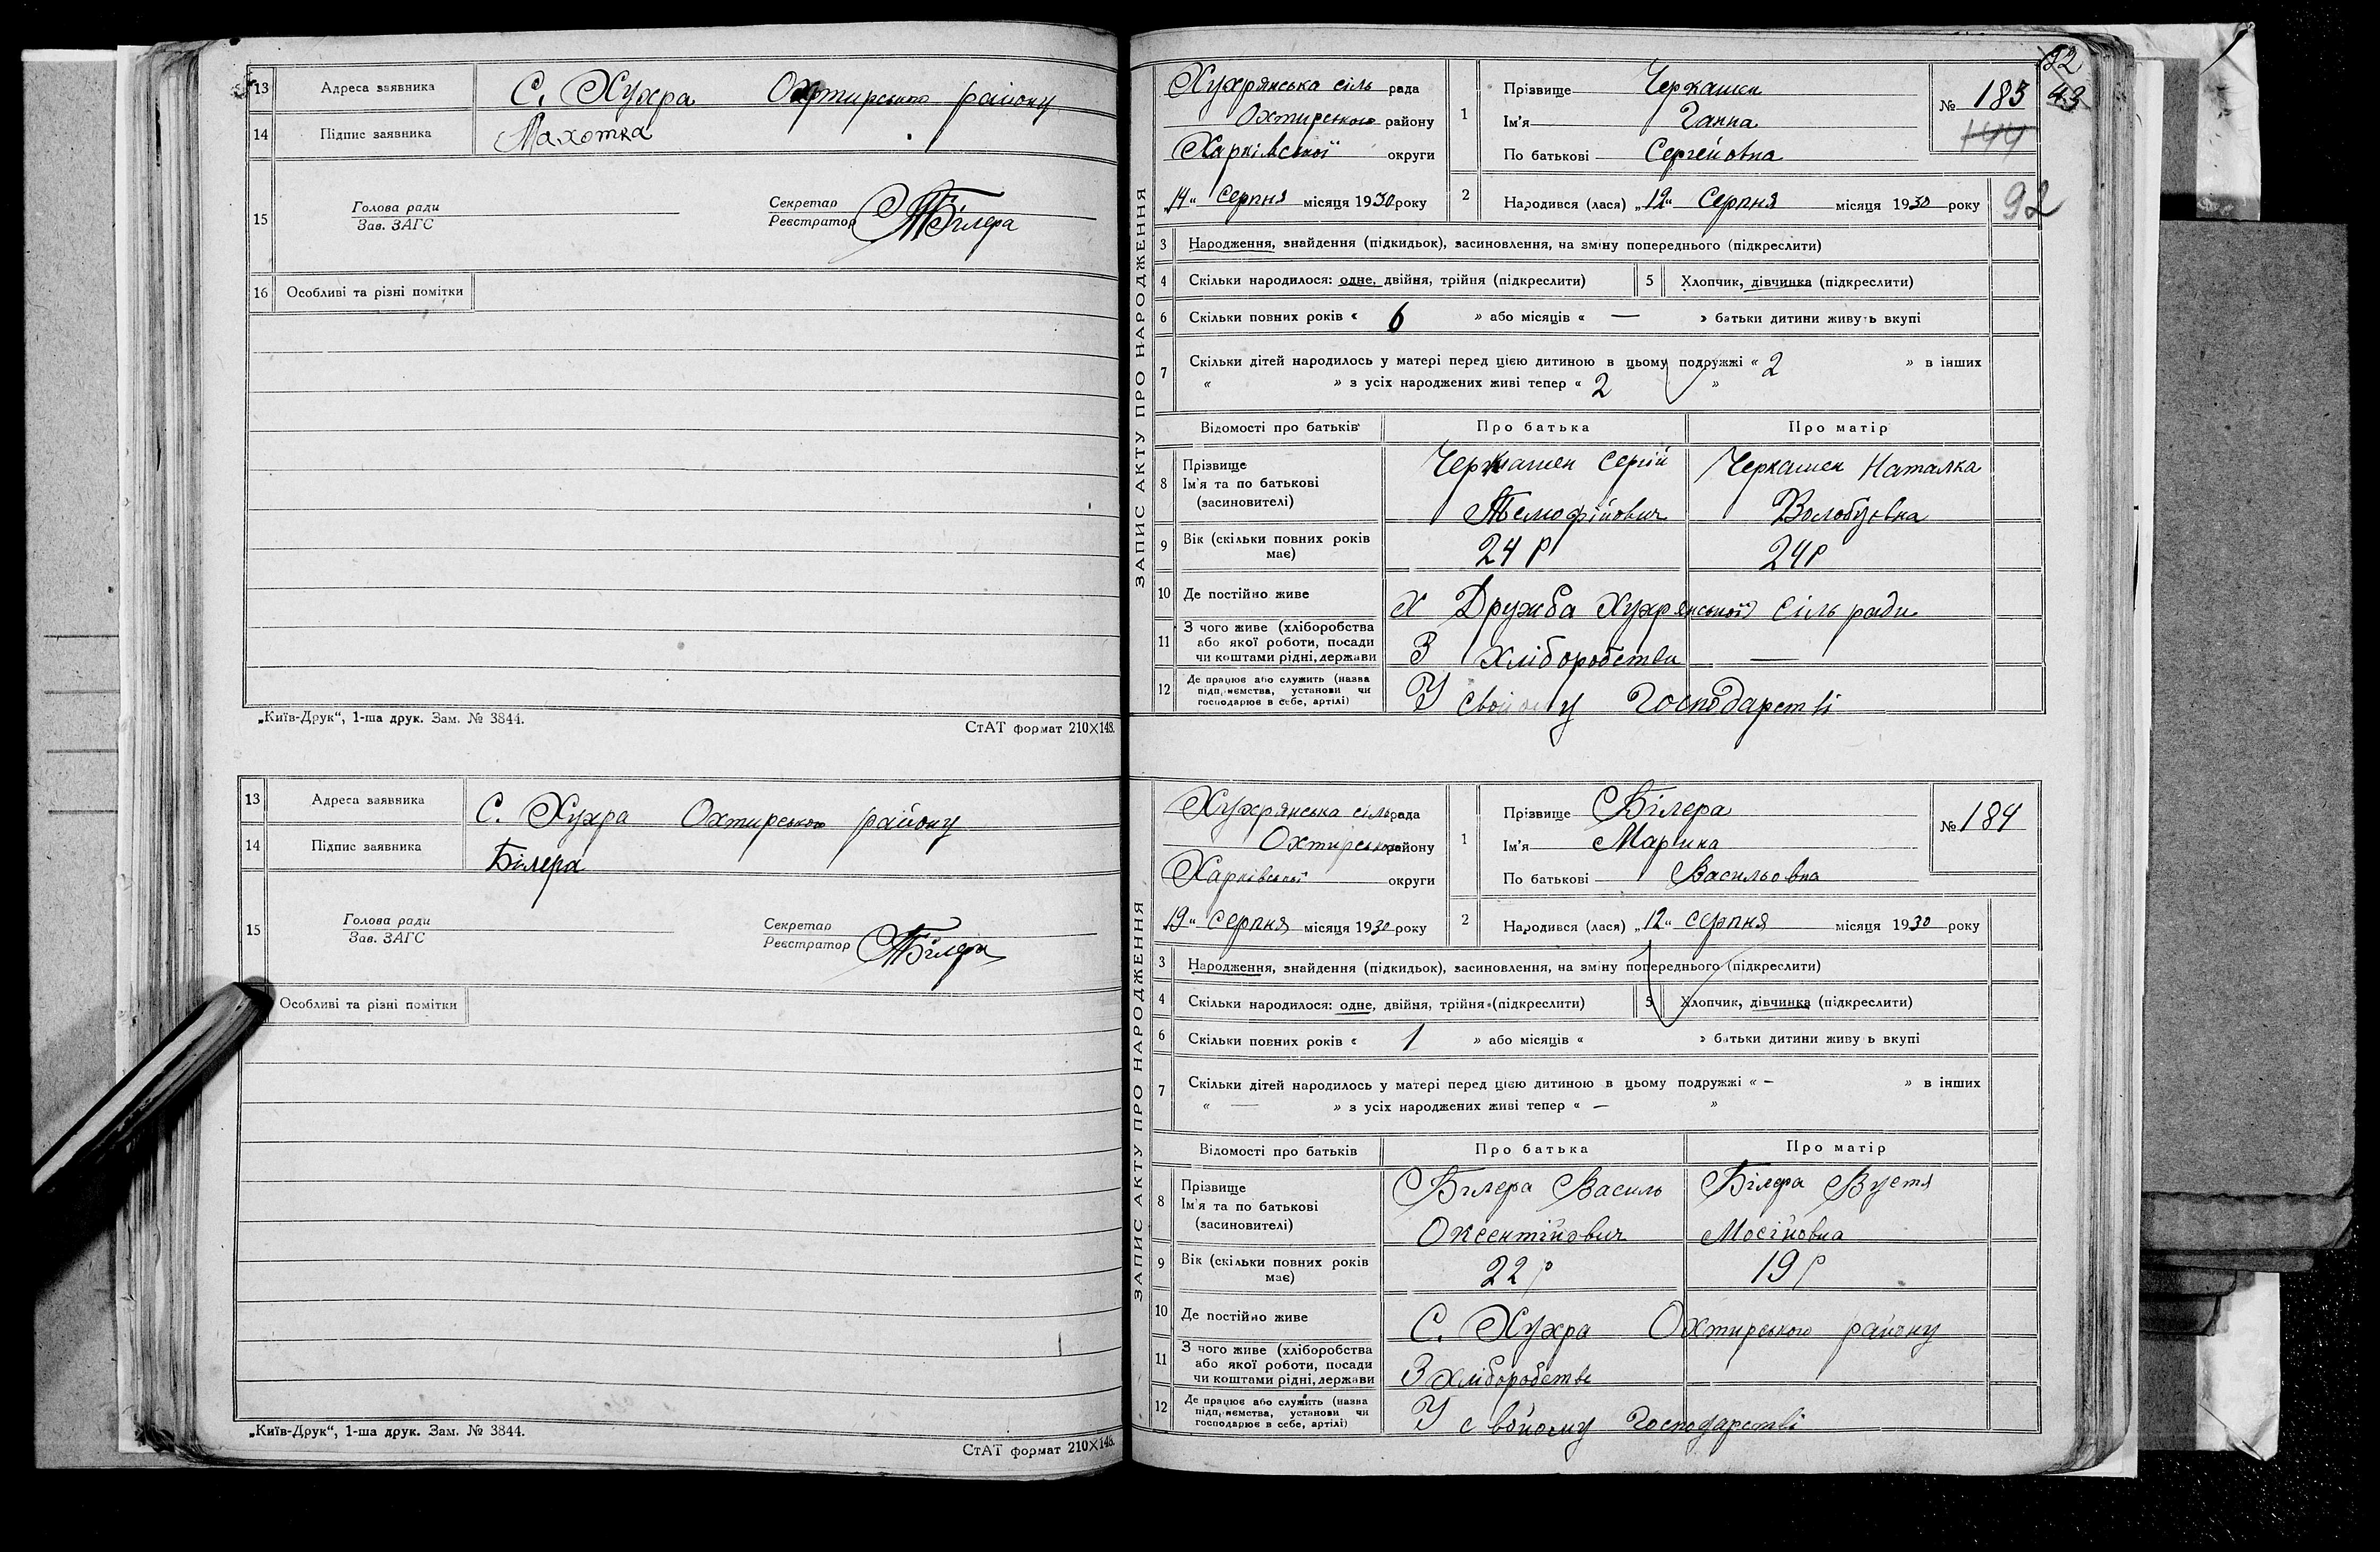 13 Адреса заявника С. Хухра Охтирського району
14 Підпис заявника Махотка
15 Голова ради
Зав. ЗАГС
Секретар
Реєстратор Білера
16 Особливі та різні помітки
„Київ-Друк“, 1-ша друк. Зам. № 3844.
СтАТ формат 210×148.
13 Адреса заявника С. Хухра Охтирського району
14 Підпис заявника Білера
15 Голова ради
Зав. ЗАГС
Секретар
Реєстратор Білера
Особливі та різні помітки
„Київ-Друк“, 1-ша друк. Зам. № 3844.
СтАТ формат 210×148.
ЗАПИС АКТУ ПРО НАРОДЖЕННЯ
92
43
Хухрянська сіль рада
Охтирського району
Харківської округи
„14“ Серпня місяця 1930 року
1 Прізвище Черкашен
Ім'я Ганна
По батькові Сергейовна
№ 183
144
2 Народився (лася) „12“ Серпня місяця 1930 року
92
3 Народження, знайдення (підкидьок), засиновлення, на зміну попереднього (підкреслити)
4 Скільки народилося: одне, двійня, трійня (підкреслити) 5 Хлопчик, дівчинка (підкреслити)
6 Скільки повних років « 6 » або місяців « — » батьки дитини живуть вкупі
7 Скільки дітей народилось у матері перед цією дитиною в цьому подружжі « 2 » в інших
« » з усіх народжених живі тепер « 2 »
Відомості про батьків Про батька Про матір
8 Прізвище
Ім'я та по батькові
(засновителі)
Черкашен Сергій
Тимофійович
Черкашен Наталка
Волобуєвна
9 Вік (скільки повних років має) 24 р 24 р
10 Де постійно живе Х Дружба Хухрянської Сіль ради
11 З чого живе (хліборобства
або якої роботи, посади
чи коштами рідні, держави
З Хліборобства —
12 Де працює або служить (назва
підприємства, установи чи
господарює в себе, артілі)
У свойому Господарстві
ЗАПИС АКТУ ПРО НАРОДЖЕННЯ
Хухрянська сіль рада
Охтирського району
Харківської округи
„19“ серпня місяця 1930 року
1 Прізвище Білера
Ім'я Марина
По батькові Васильовна
№ 184
2 Народився (лася) „12“ серпня місяця 1930 року
3 Народження, знайдення (підкидьок), засиновлення, на зміну попереднього (підкреслити)
4 Скільки народилося: одне, двійня, трійня (підкреслити) 5 Хлопчик, дівчинка (підкреслити)
6 Скільки повних років « 1 » або місяців « » батьки дитини живуть вкупі
7 Скільки дітей народилось у матері перед цією дитиною в цьому подружжі « — » в інших
« — » з усіх народжених живі тепер « — »
Відомості про батьків Про батька Про матір
8 Прізвище
Ім'я та по батькові
(засиновителі)
Білера Василь
Оксентійович
Білера Вустя
Мосійовна
9 Вік (скільки повних років має) 22 р 19 р
10 Де постійно живе С. Хухра Охтирського району
11 З чого живе (хліборобства
або якої роботи, посади
чи коштами рідні, держави
З хліборобства
12 Де працює або служить (назва
підприємства, установи чи
господарює в себе, артілі)
У свойому Господарстві